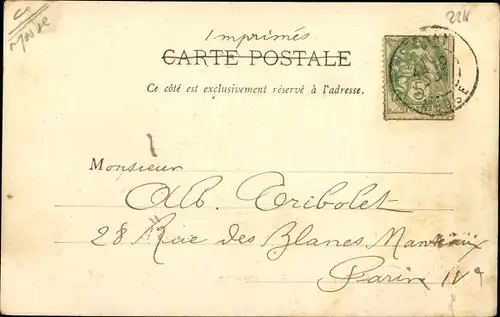 Imprimés
CARTE POSTALE
Ce côté est exclusivement réservé à l'adresse.
Monsieur
Alb. Tribolet
28 Rue des Blancs Manteaux
Paris IVe